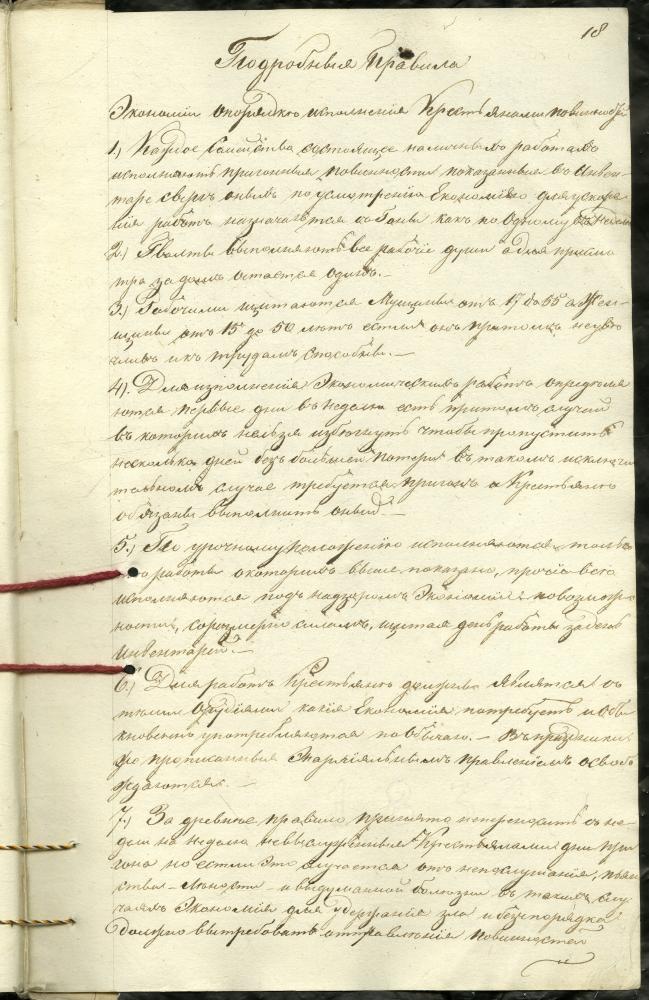 18
Подробныя Правила
Экономіи о порядкѣ исполненія Крестьянами повинностей
1.) Каждое Семейство состоящее на личныхъ работахъ
исполняетъ пригонныя повинности показанныя въ Инвен-
тарѣ сверхъ оныхъ по усмотрѣнію Экономіею для ускоре
нія работъ назначается какъ по Одному въ недѣлю
2.) Гвалты выполняютъ все рабочіе души а для присмо
тра за домъ остается одинъ.-
3.) Рабочими щитаются Мущины отъ 17 до 55 а Жен-
щины отъ 15 до 50 лѣтъ если онъ притомъ не увѣ
чливъ и къ трудамъ способны.-
4). Для изполненія Экономическихъ работъ опредѣля
ются первые дни въ недѣлю есть притомъ случай
въ которомъ нельзя избѣгнуть чтобы пропустить
несколько дней безъ большей потери въ такомъ исключи
тельномъ случае требуется пригонъ а Крестьяне
обязаны выполнить оный.-
5.) По урочному положенію исполняются только
работы о которыхъ выше показано, прочіе все
исполняются подъ надзоромъ Экономіи по возможно
ности, соразмерно силамъ, щитая день работы за день
Инвентарный.-
6.) Для работъ Крестьяне должны являтся съ
тѣми Орудіями какія Экономія потребуетъ и обы
кновенно употребляются по обычаю.- Въ праздники
же прописанныя Эпархіяльнымъ правленіемъ освобо
ждаются.-
7.) За древнее правило принято непереносить съ не-
дели на неделю невыслуженныя Крестьянами дни при
гона но естли это случается отъ непослушанія, пьян
ства - лѣности - и выдуманной болѣзни въ такихъ слу
чаяхъ Экономія для удержанія зла и безпорядка
должно вытребовать отправленія повинностей